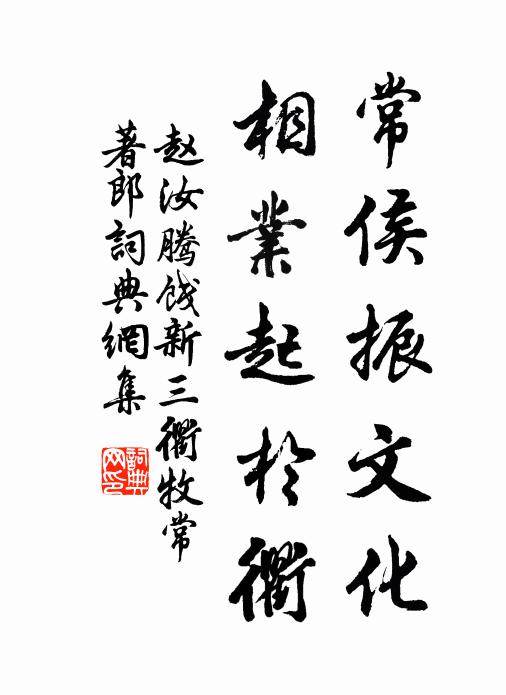 常侯振文化
相業起於衢
赵汝腾饯新三衢牧常
著郎詞典網集
詞典网印